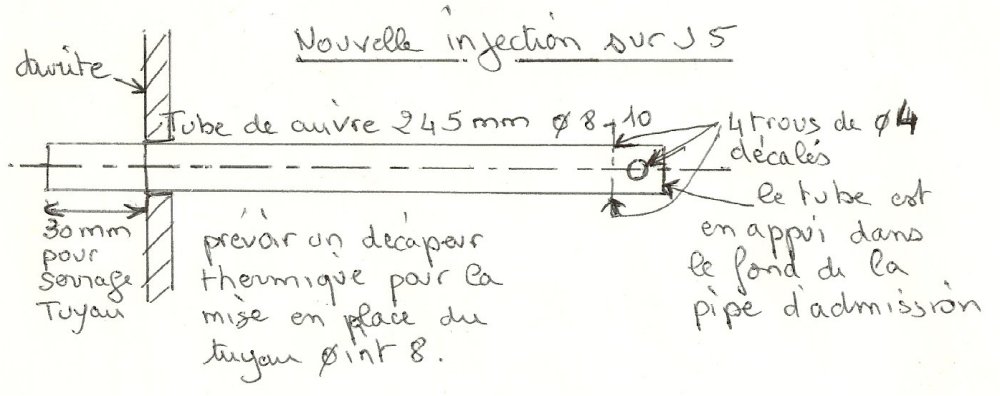 Nouvelle injection sur J5
durite
Tube de cuivre 245mm ø 8-10
4 trous de ø4
décalés
le tube est
en appui dans
le fond de la
pipe d'admission
30mm
pour
serrage
Tuyau
prévoir un décapeur
thermique pour la
mise en place du
tuyau øint 8.